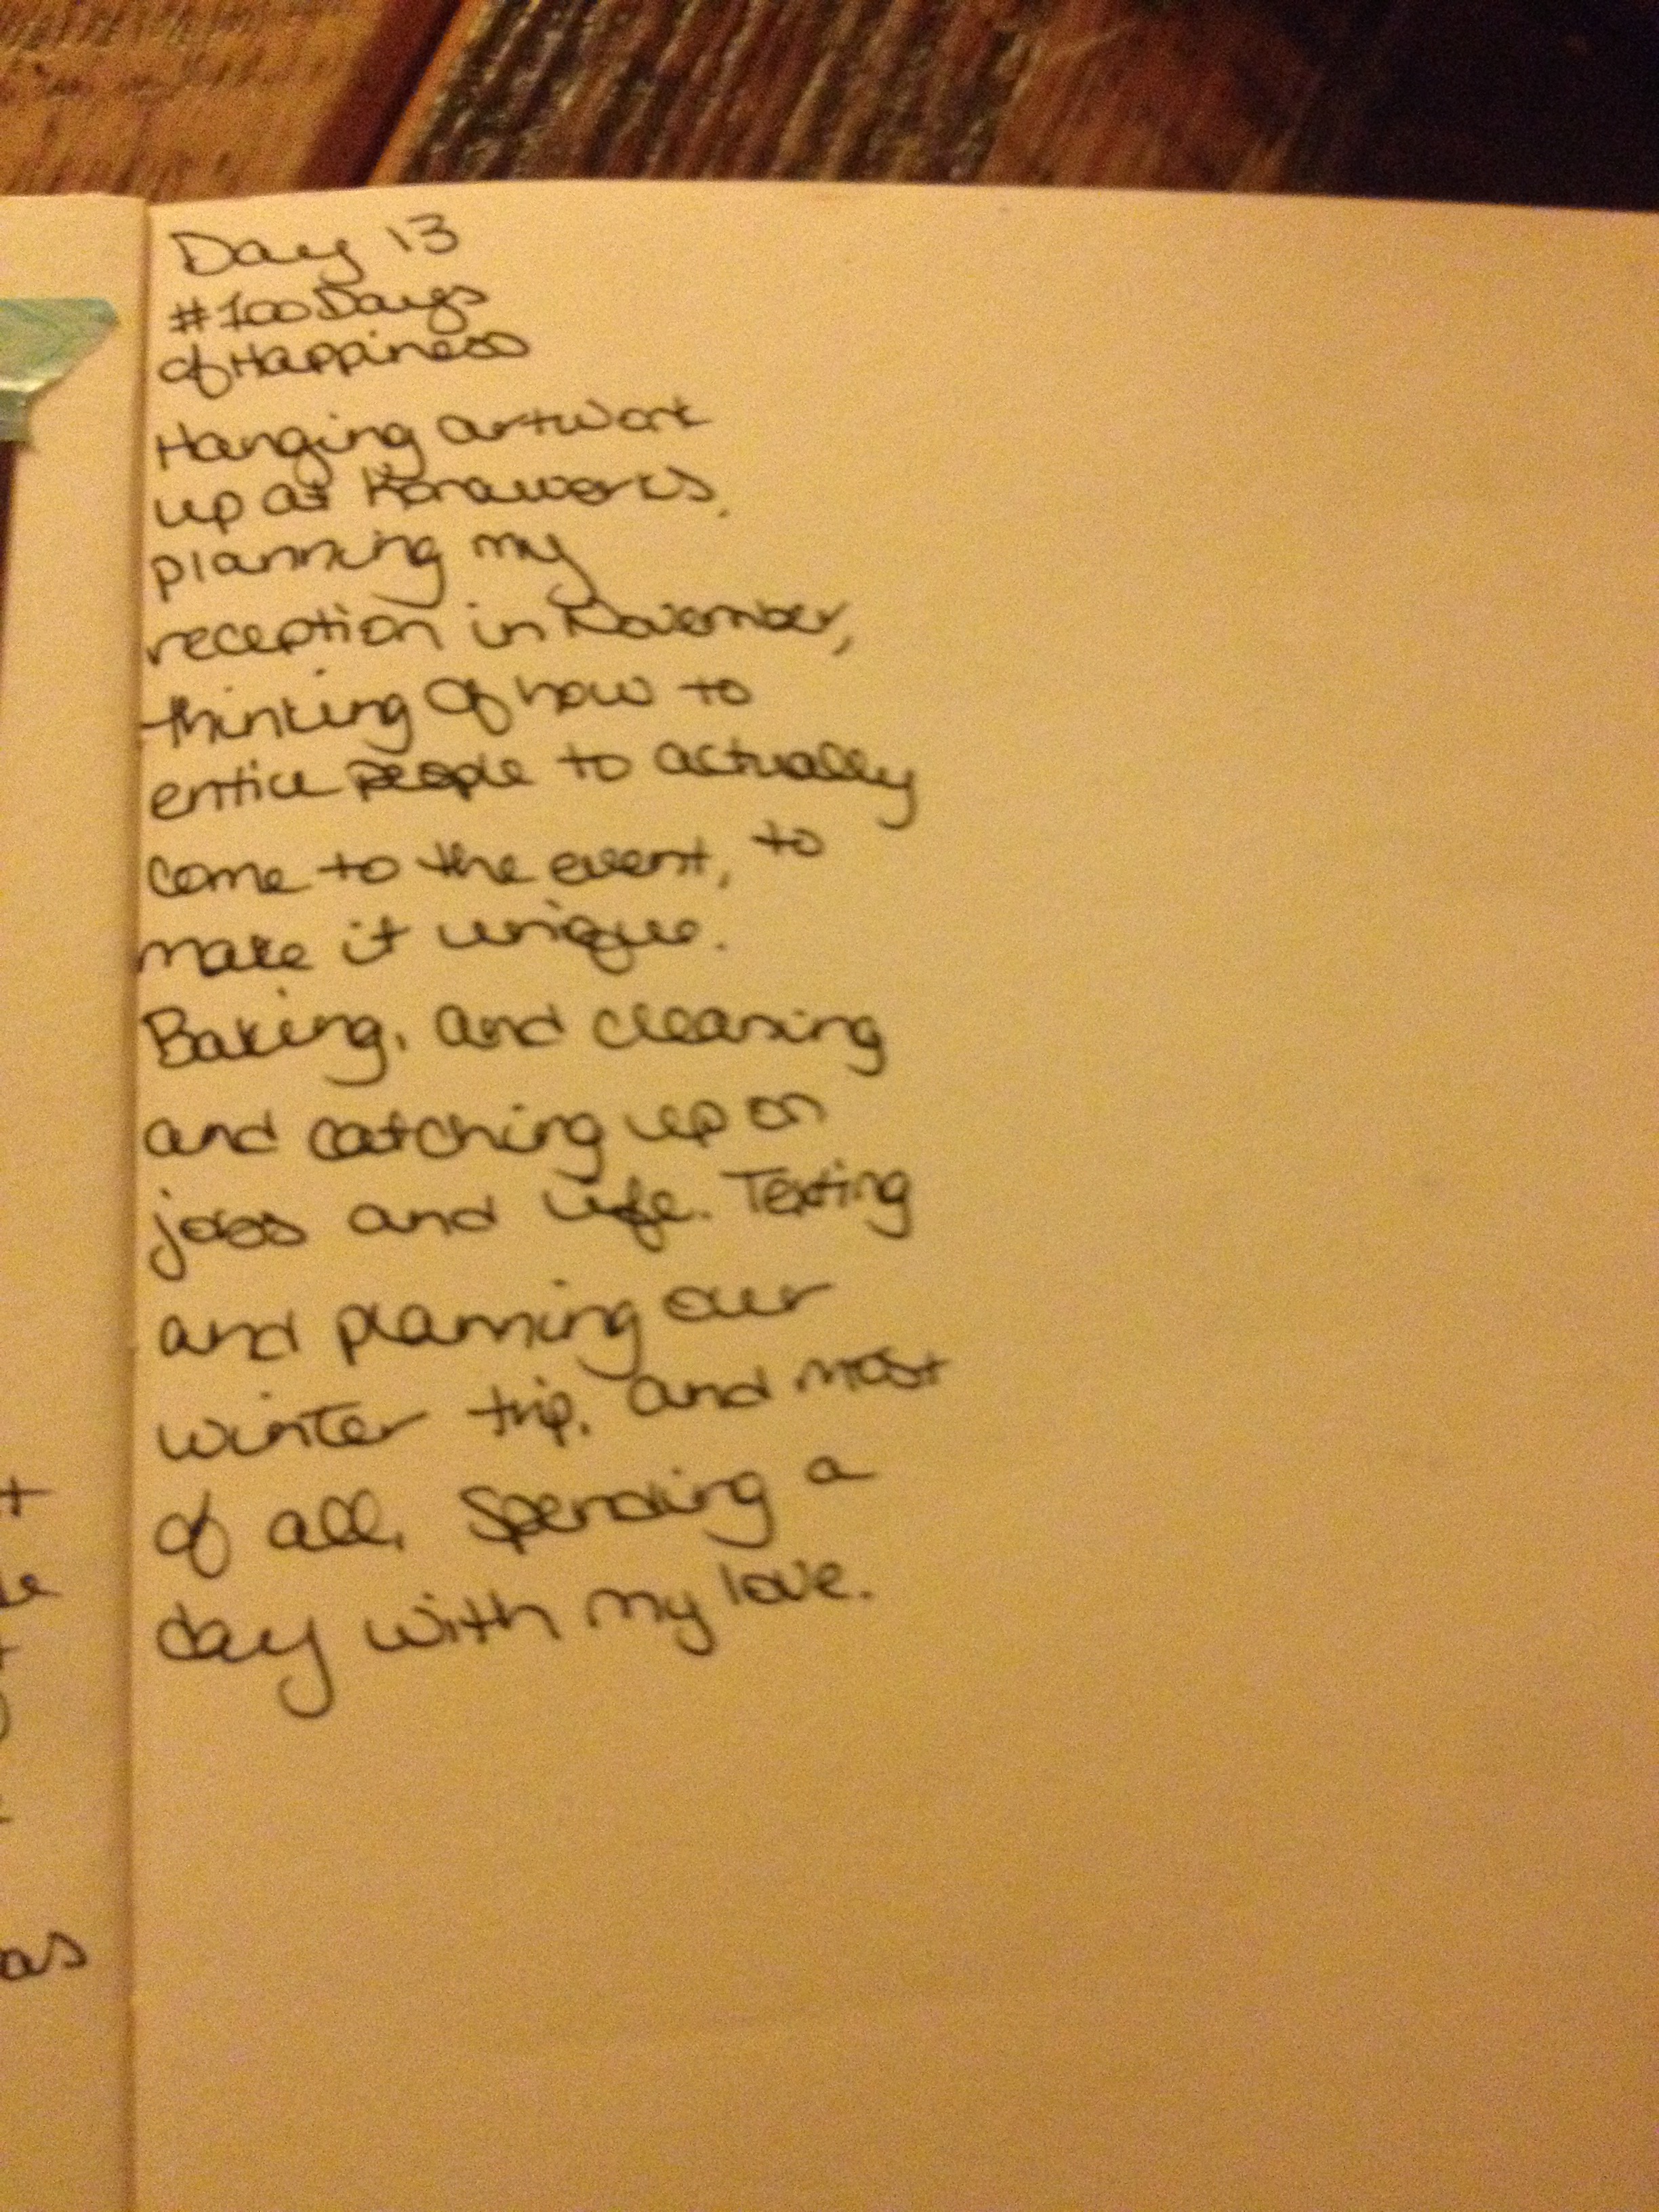 Day 13
#100Days
ofHappiness
Hanging artwork
up at Konaworks.
planning my
reception in November,
thinking of how to
entice people to actually
come to the event, to
make it unique.
Baking, and cleaning
and catching up on
jobs and life. Texting
and planning our
winter trip, and most
of all, spending a
day with my love.
as